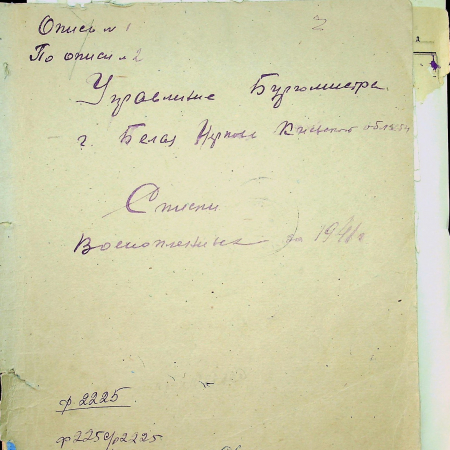 Опись № 1
По описи № 2
Управление Бургомистра
г. Белая Церковь Киевской области
Списки
Военопленных за 1941 г
ф 2225
ф 2225